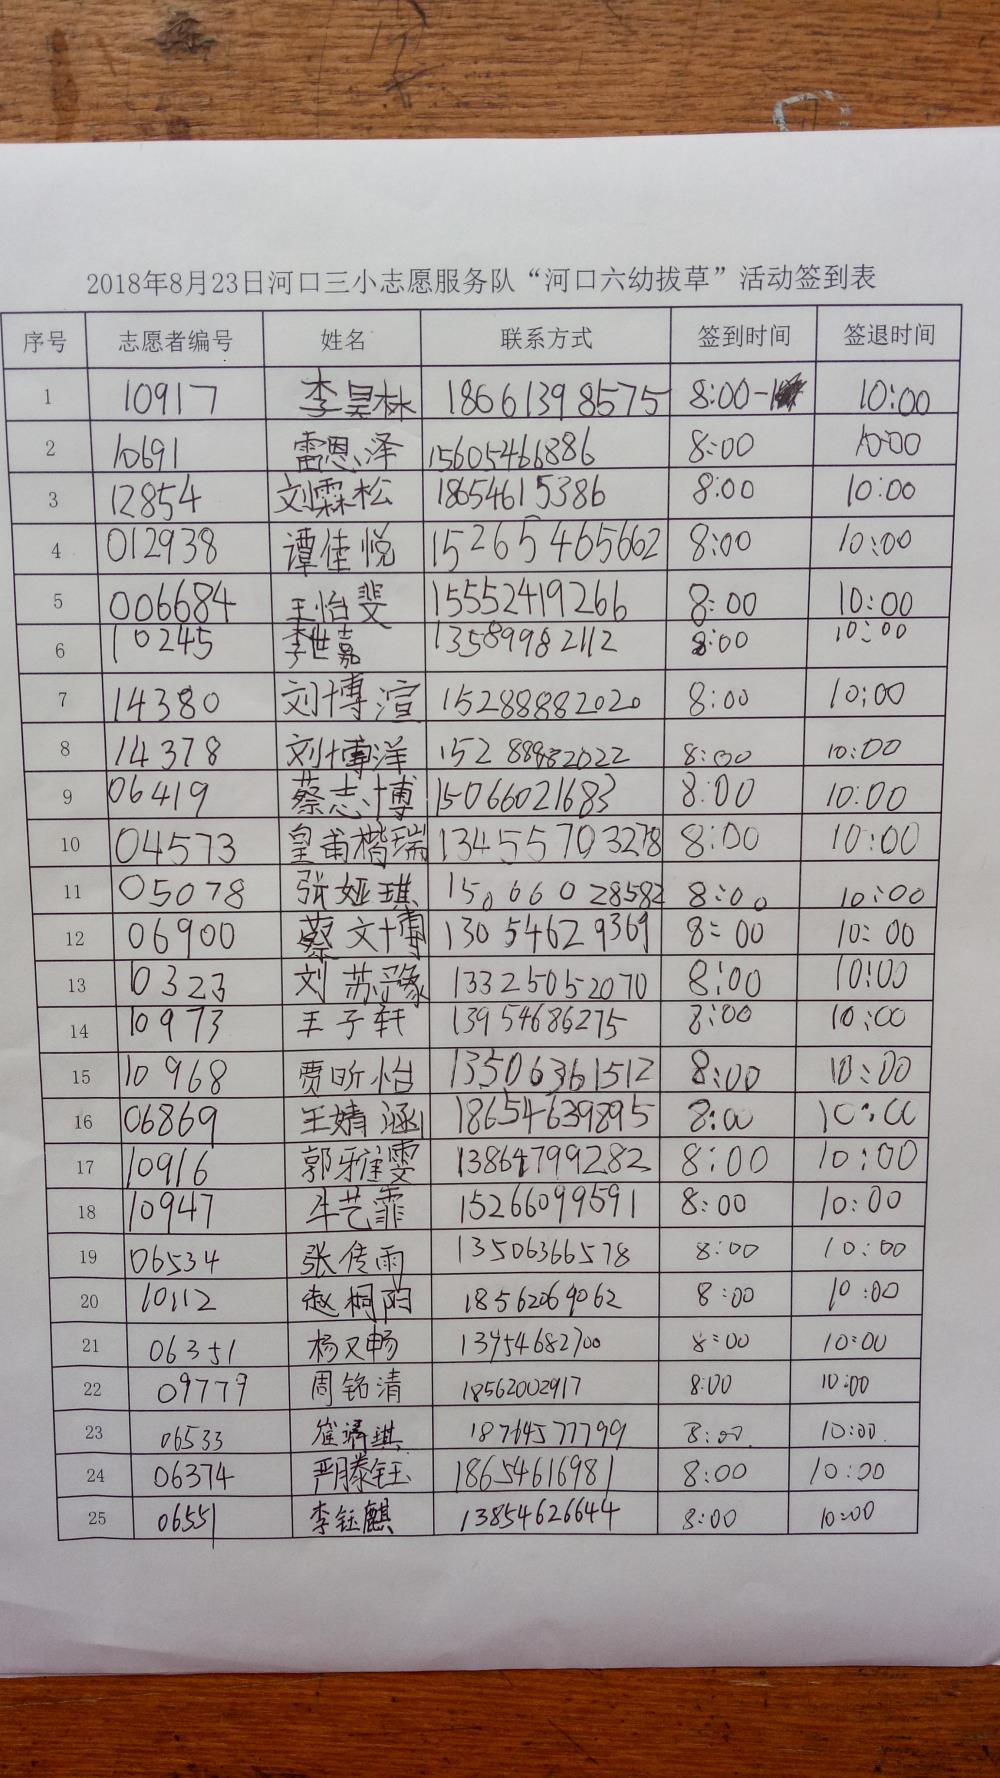 2018年8月23日河口三小志愿服务队“河口六幼拔草”活动签到表
序号 志愿者编号 姓名 联系方式 签到时间 签退时间
1 10917 李昊林 18661398575 8:00- 10:00
2 10691 雷恩泽 15605466886 8:00 10:00
3 12854 刘霖松 18654615386 8:00 10:00
4 012938 谭佳悦 15265465662 8:00 10:00
5 006684 王怡斐 15552419266 8:00 10:00
6 10245 李世嘉 13589982112 8:00 10:00
7 14380 刘博渲 15288882020 8:00 10:00
8 14378 刘博洋 15288882022 8:00 10:00
9 06419 蔡志博 15066021683 8:00 10:00
10 04573 皇甫楷瑞 13455703278 8:00 10:00
11 05078 张娅琪 15066028582 8:00 10:00
12 06900 蔡文博 13054629369 8:00 10:00
13 10323 刘苏豫 13325052070 8:00 10:00
14 10973 王子轩 13954686275 8:00 10:00
15 10968 贾昕怡 13506361512 8:00 10:00
16 06869 王婧涵 18654639895 8:00 10:00
17 10916 郭雅雯 13864799282 8:00 10:00
18 10947 牛艺霏 15266099591 8:00 10:00
19 06534 张传雨 13506366578 8:00 10:00
20 10112 赵桐 18562069062 8:00 10:00
21 06351 杨又畅 13954682700 8:00 10:00
22 09779 周铭清 18562002917 8:00 10:00
23 06533 崔靖琪 18764577799 8:00 10:00
24 06374 严滕钰 18654616981 8:00 10:00
25 06551 李钰麒 13854626644 8:00 10:00